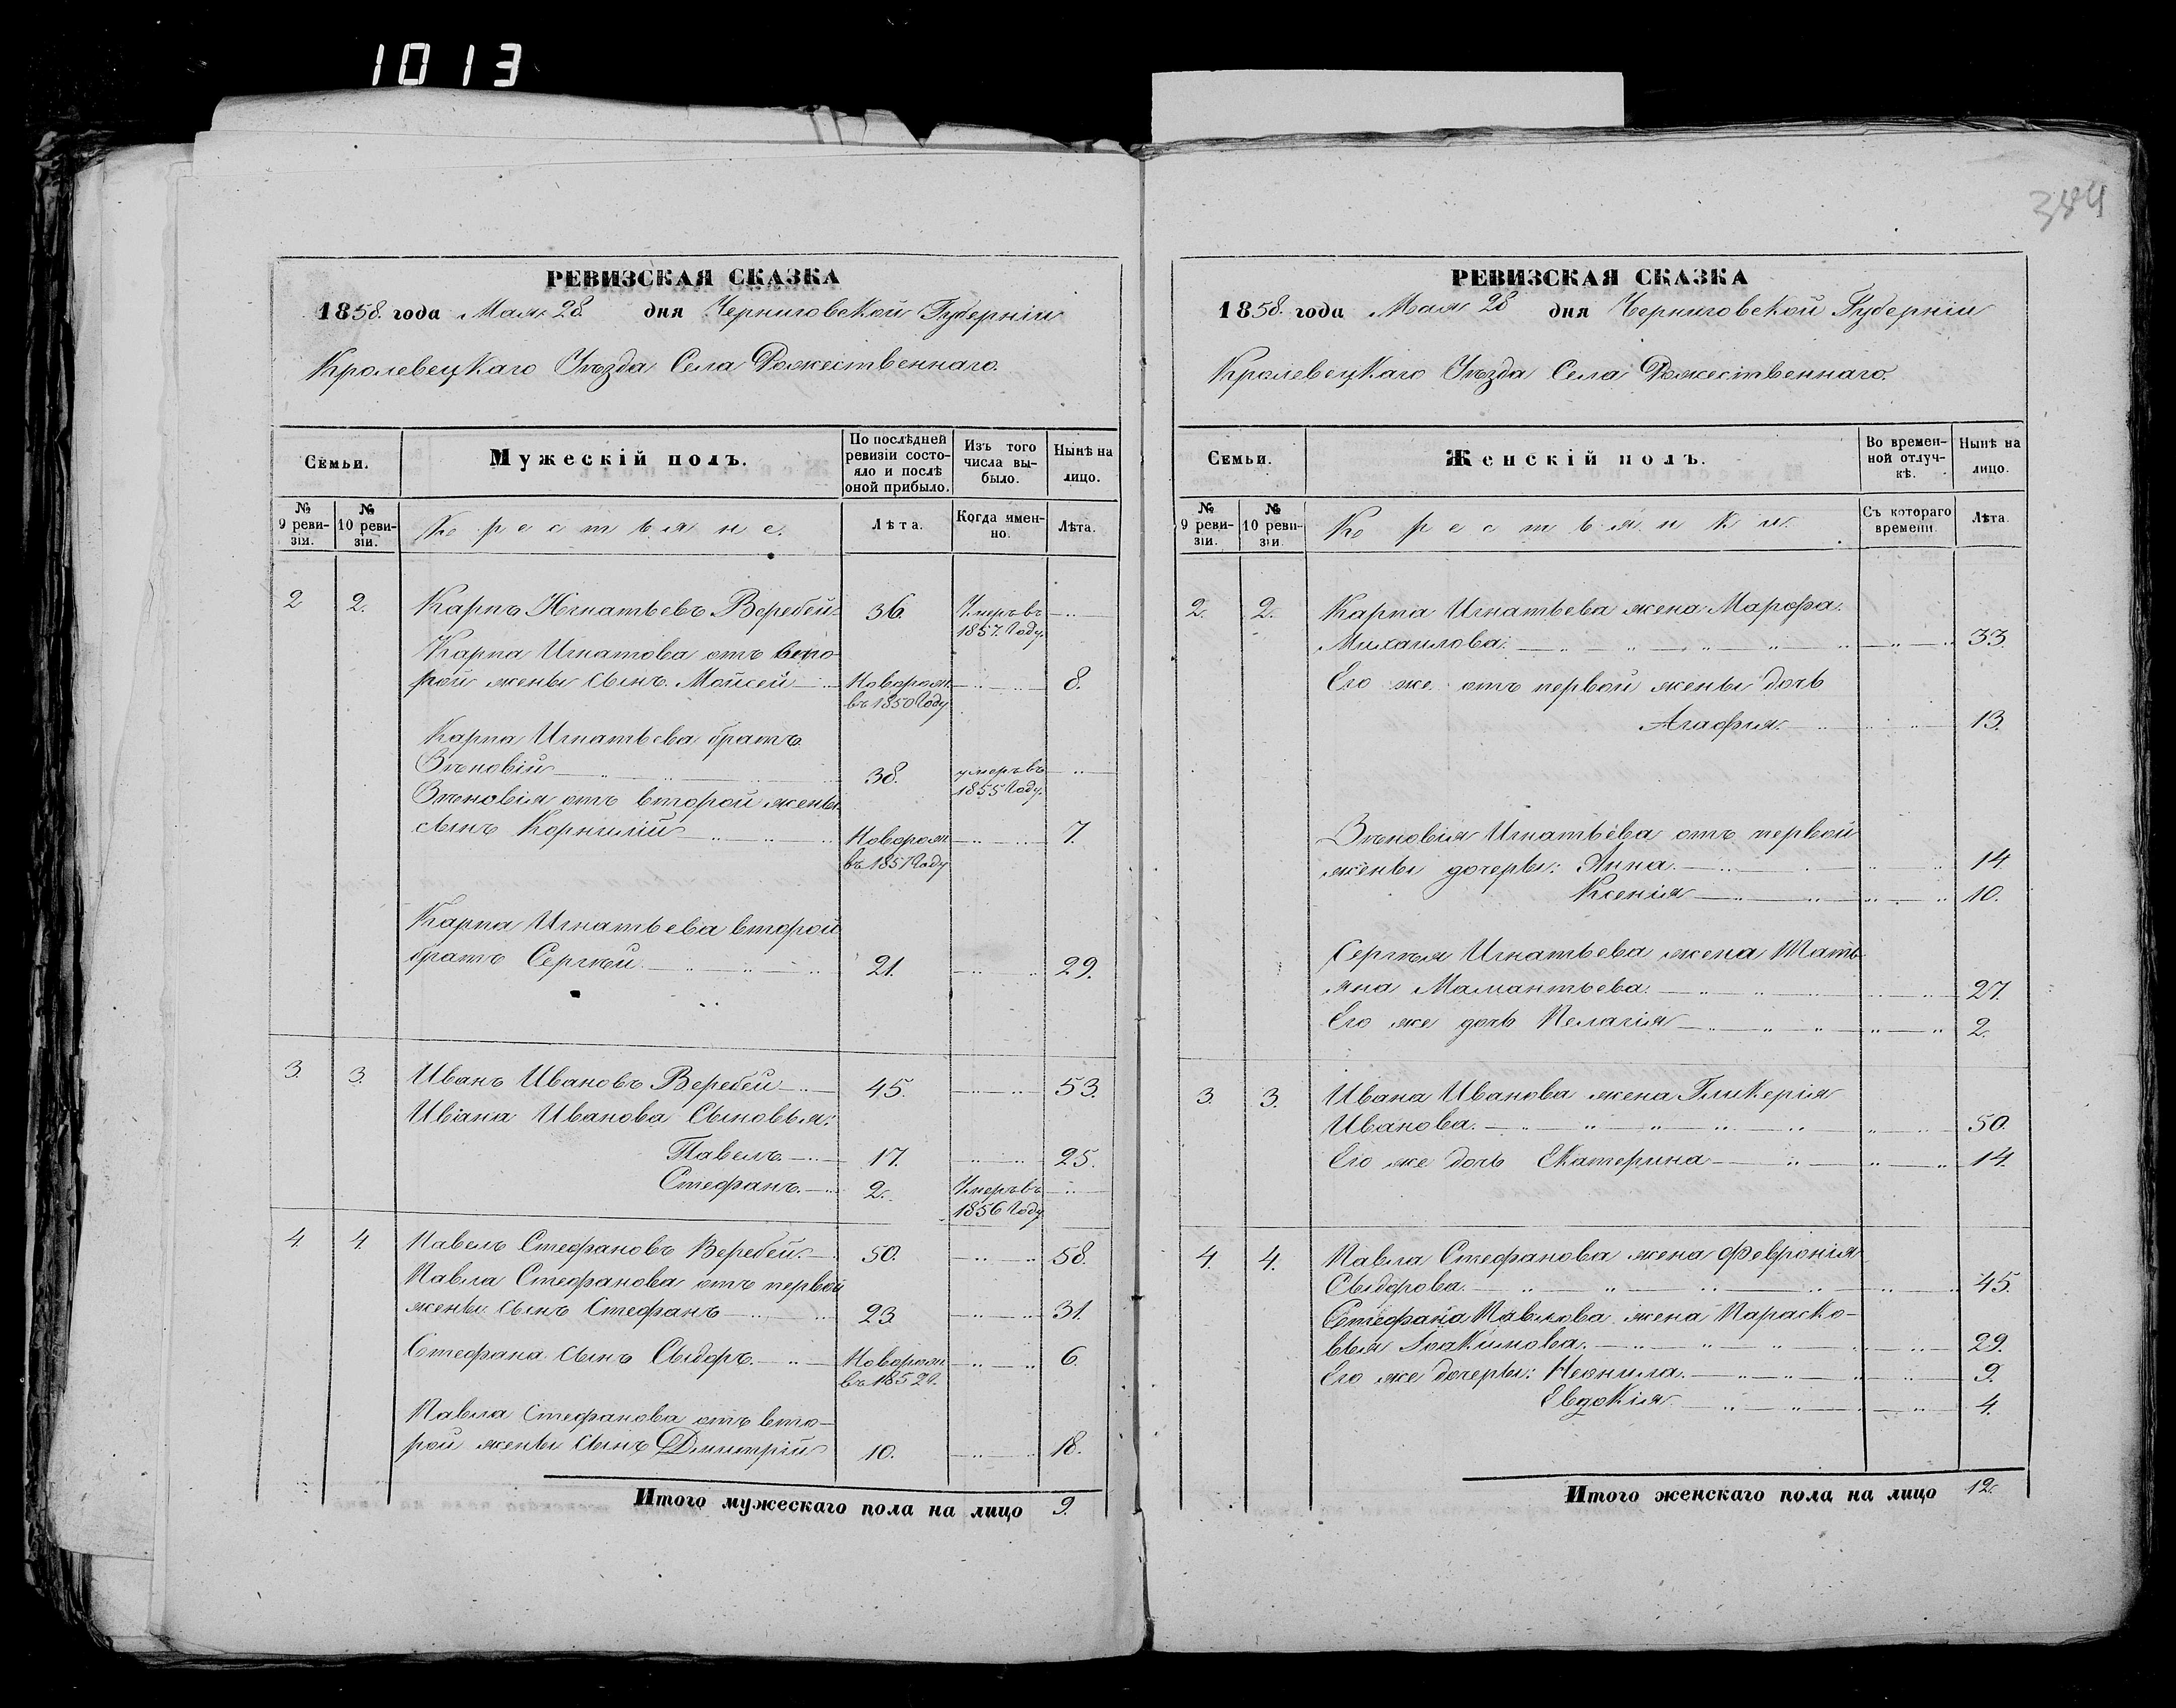 1013
384
РЕВИЗСКАЯ СКАЗКА
1858. года Мая 28 дня Черниговской Губерніи
Кролевецкаго Уѣзда Села Рожественнаго.
Семьи.
Мужескій полъ.
По послѣдней ревизіи состояло и послѣ оной прибыло.
Изъ того числа выбыло.
Нынѣ на лицо.
№ 9 ревизіи.
№ 10 ревизіи.
Крестьяне.
Лѣта.
Когда именно.
Лѣта.
2 2. Карпъ Игнатьевъ Веребей 36. Умеръ въ 1857. Году.
Карпа Игнатова отъ вто-
рой жены сынъ Мойсей Новорож. въ 1850 Году 8.
Карпа Игнатьева братъ
Зѣновій 38. умеръ въ 1855 Году.
Зѣновія отъ второй жены
сынъ Корнилій Новорож въ 1851 Году 7.
Карпа Игнатьева второй
братъ Сергѣй 21. 29.
3. 3. Иванъ Ивановъ Веребей 45. 53.
Ивана Иванова Сыновья:
Павелъ 17. 25.
Стефанъ 2. Умеръ въ 1856 Году
4. 4. Павелъ Стефановъ Веребей 50. 58.
Павла Стефанова отъ первой
жены сынъ Стефанъ 23. 31.
Стефана сынъ Сыдоръ Новорож. въ 1852 г. 6.
Павла Стефанова отъ вто-
рой жены сынъ Дмитрій 10. 18.
Итого мужескаго пола на лицо 9.
РЕВИЗСКАЯ СКАЗКА
1858. года Мая 28 дня Черниговской Губерніи
Кролевецкаго Уѣзда Села Рожественнаго.
Семьи.
Женскій полъ.
Во временной отлучкѣ.
Нынѣ на лицо.
№ 9 ревизіи.
№ 10 ревизіи
Крестьянки.
Съ котораго времени.
Лѣта.
2. 2. Карпа Игнатьева жена Марфа
Михаилова 33.
Его же отъ первой жены дочь
Агафия 13.
Зѣновія Игнатьева отъ первой
жены дочери: Анна 14
Ксенія 10.
Сергѣя Игнатьева жена Тать-
яна Мамантьева 27.
Его же дочь Пелагія 2.
3. 3. Ивана Иванова жена Гликерія
Иванова 50.
Его же дочь Екатерина 14.
4. 4. Павла Стефанова жена Февронія
Сыдорова 45.
Стефана Павлова жена Параско-
вья Іоакимова 29.
Его же дочери: Неонила 9.
Евдокія 4.
Итого женскаго пола на лицо 12.